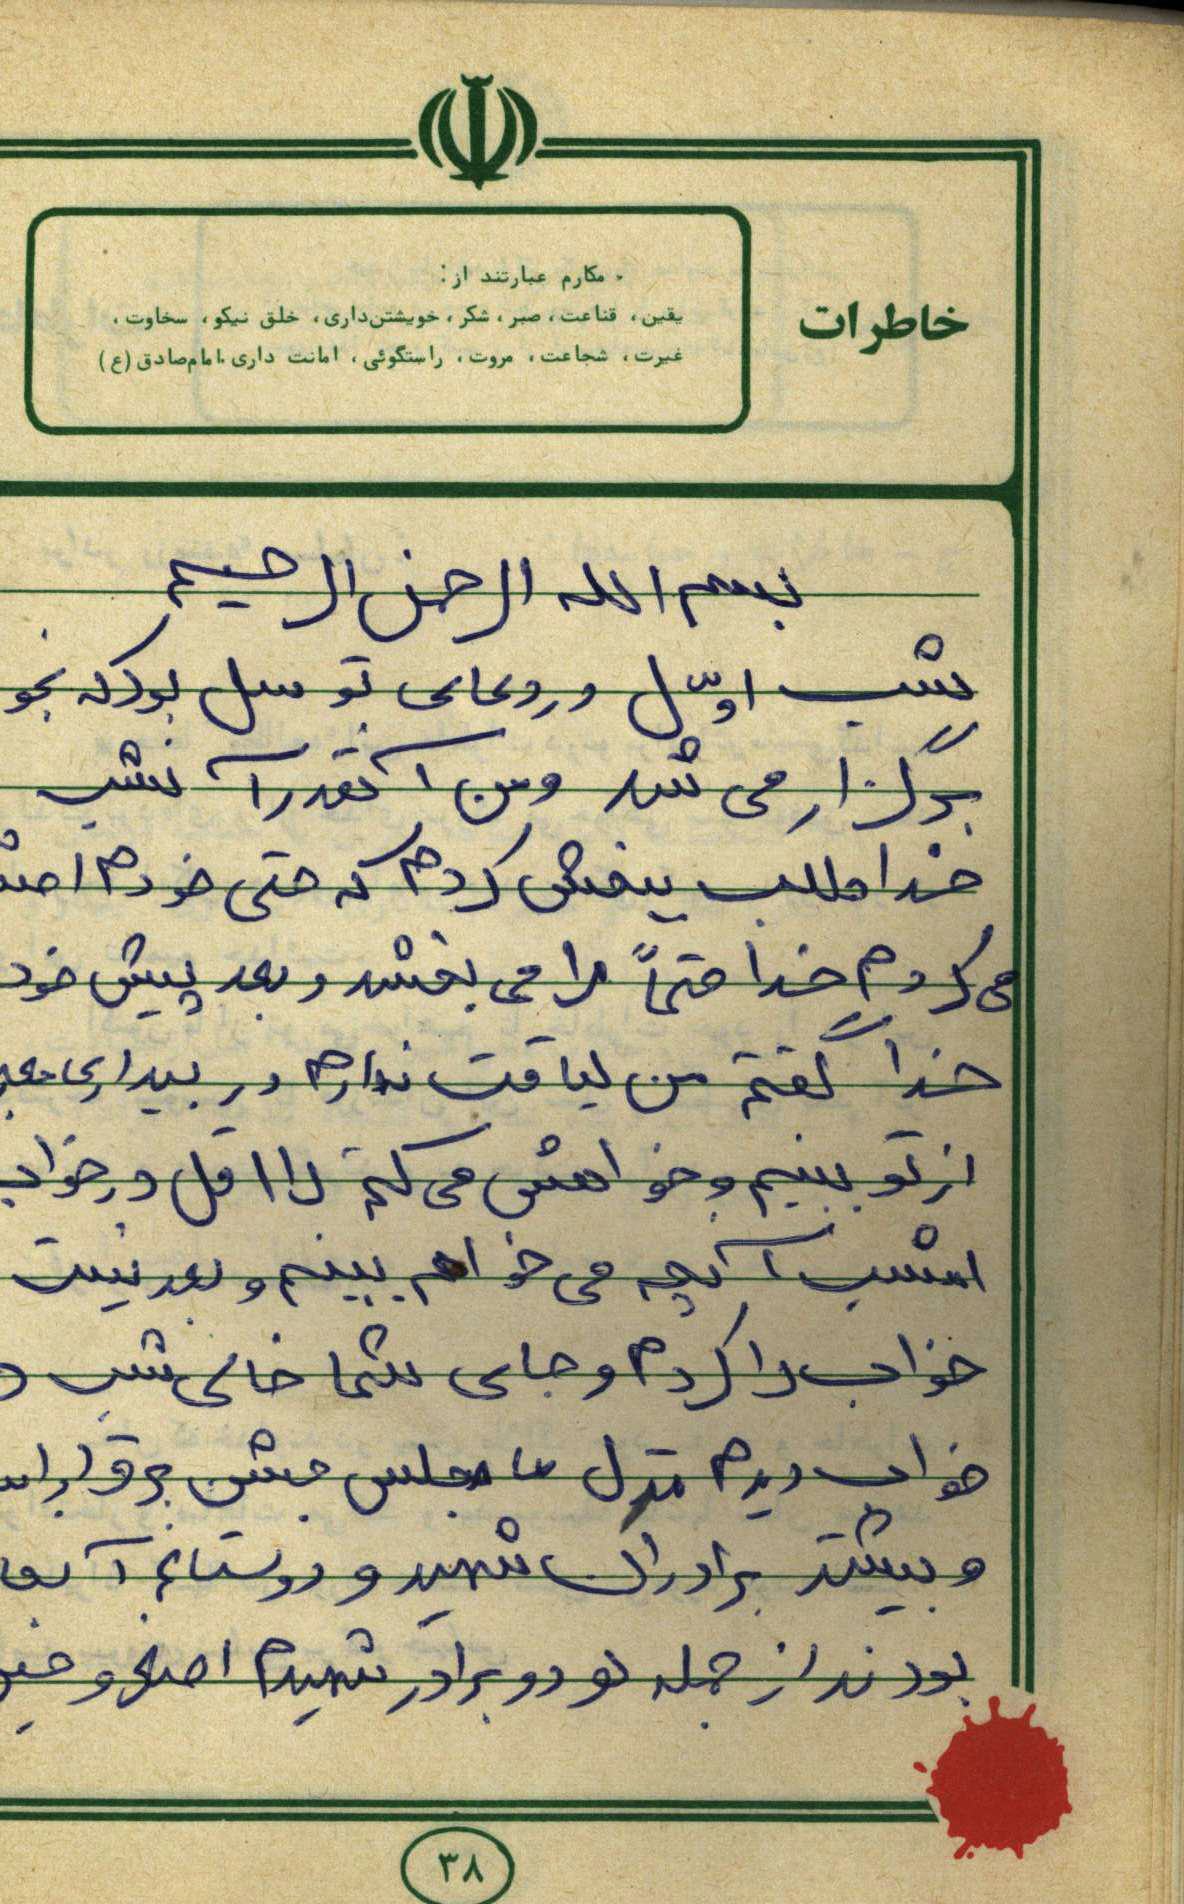 خاطرات
- مکارم عبارتند از:
یقین، قناعت، صبر، شکر، خویشتن‌داری، خلق نیکو، سخاوت،
غیرت، شجاعت، مروت، راستگوئی، امانت داری.امام‌صادق (ع)
بسم الله الرحمن الرحیم
شب اوّل ودعای توسل بود که بخو
برگزار می شد ومن آنقدر آنشب
خدا طلب بخشش کردم که حتی خودم احس
می کردم خدا حتماً مرا می بخشد و بعد پیش خود
خدا گفتم من لیاقت ندارم در بیداری
از تو ببینم و خواهش می کنم لااقل در خواب
امشب آنچه می خواهم ببینم و بعد نیت
خواب را کردم و جای شما خالی شب
خواب دیدم منزل ما مجلس جشن برقرار
و بیشتر برادران شهید و دوستانم آنجا
بودند از جمله دو برادر شهیدم اصغر و
۳۸